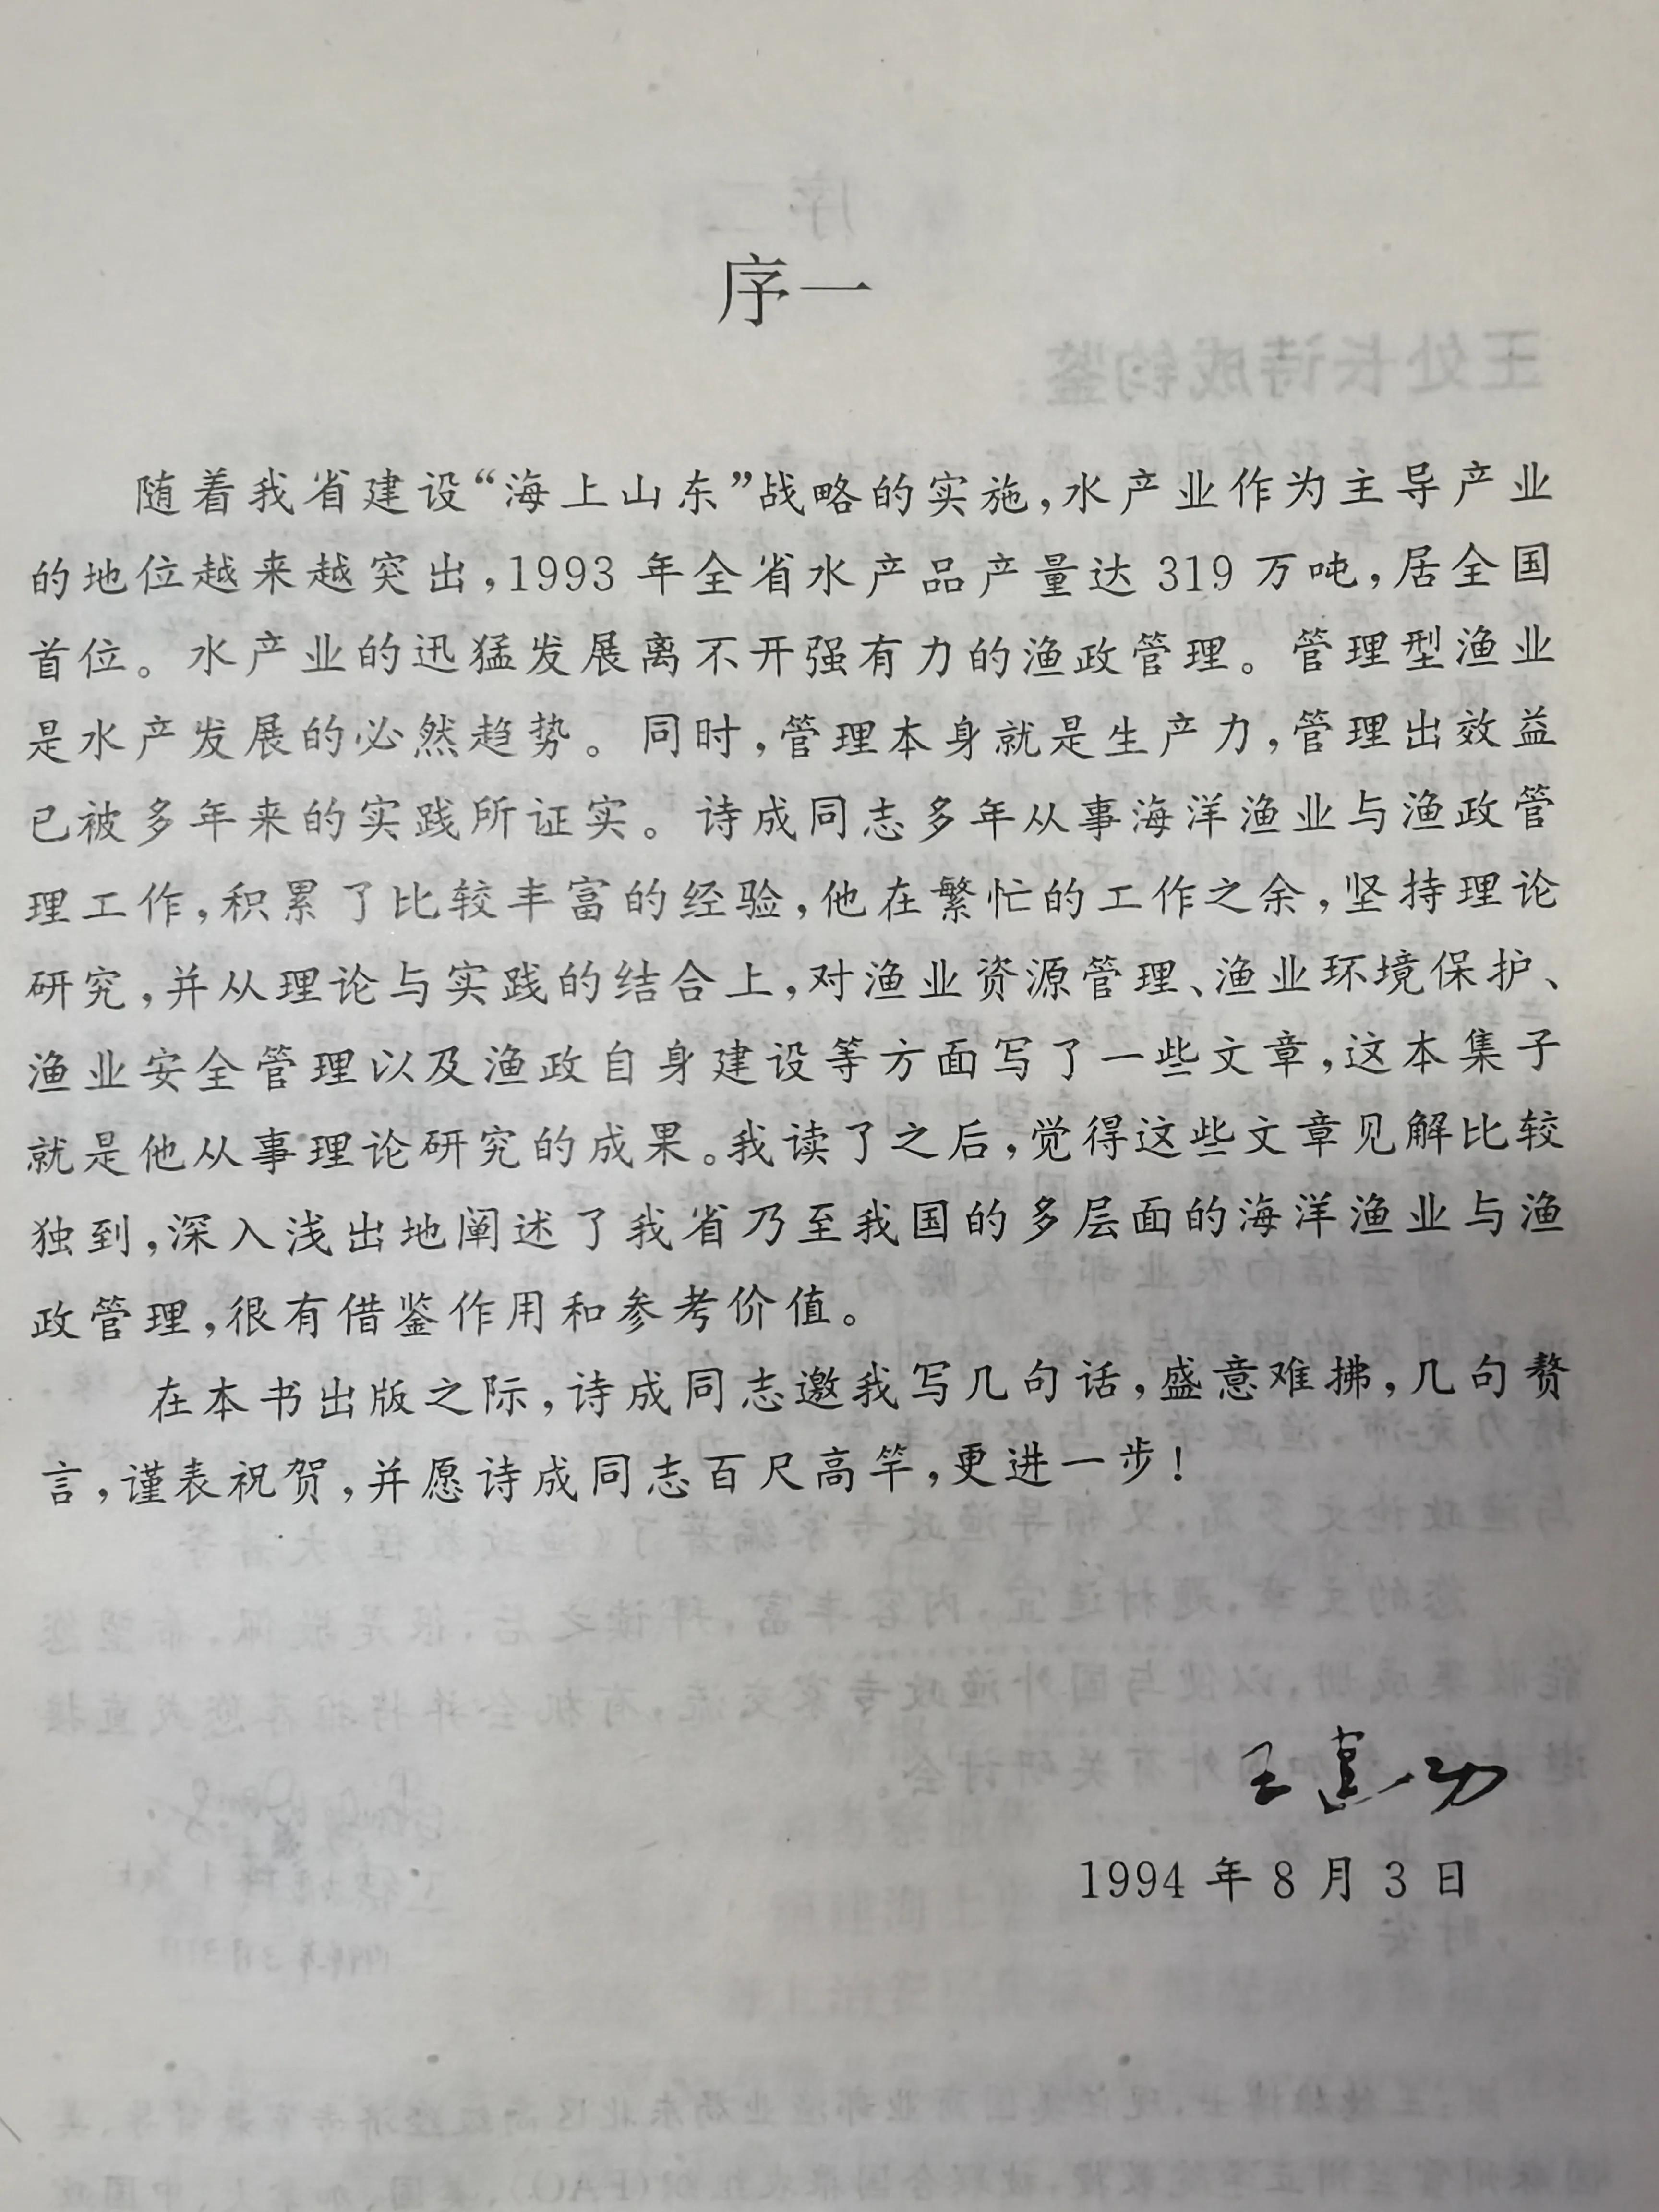 序一
随着我省建设“海上山东”战略的实施,水产业作为主导产业
的地位越来越突出,1993年全省水产品产量达319万吨,居全国
首位。水产业的迅猛发展离不开强有力的渔政管理。管理型渔业
是水产发展的必然趋势。同时,管理本身就是生产力,管理出效益
已被多年来的实践所证实。诗成同志多年从事海洋渔业与渔政管
理工作,积累了比较丰富的经验,他在繁忙的工作之余,坚持理论
研究,并从理论与实践的结合上,对渔业资源管理、渔业环境保护、
渔业安全管理以及渔政自身建设等方面写了一些文章,这本集子
就是他从事理论研究的成果。我读了之后,觉得这些文章见解比较
独到,深入浅出地阐述了我省乃至我国的多层面的海洋渔业与渔
政管理,很有借鉴作用和参考价值。
在本书出版之际,诗成同志邀我写几句话,盛意难拂,几句赘
言,谨表祝贺,并愿诗成同志百尺高竿,更进一步!
王建功
1994年8月3日